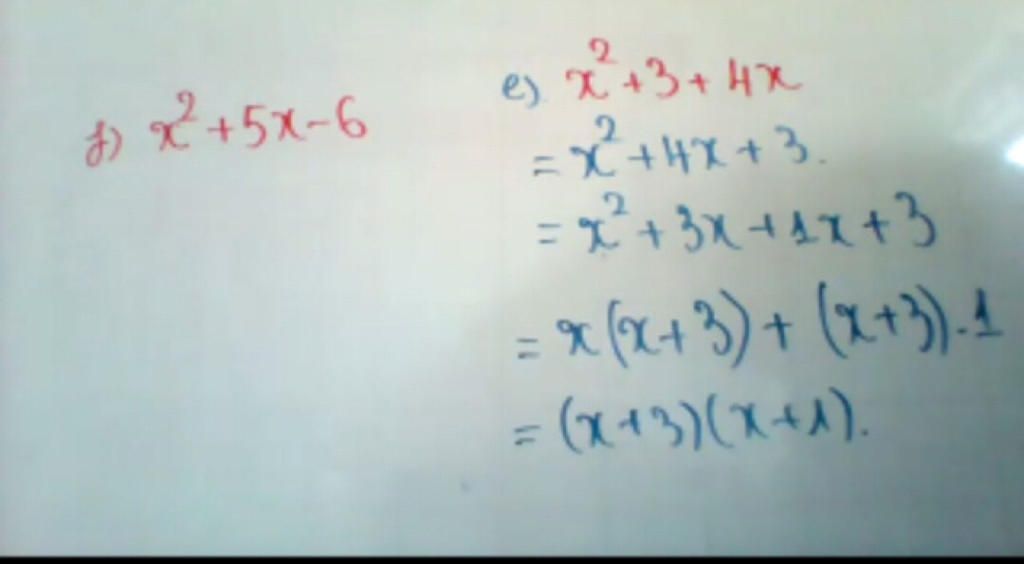 f) x² + 5x - 6
e) x² + 3 + 4x
= x² + 4x + 3.
= x² + 3x + 1x + 3
= x(x + 3) + (x + 3) . 1
= (x + 3)(x + 1).